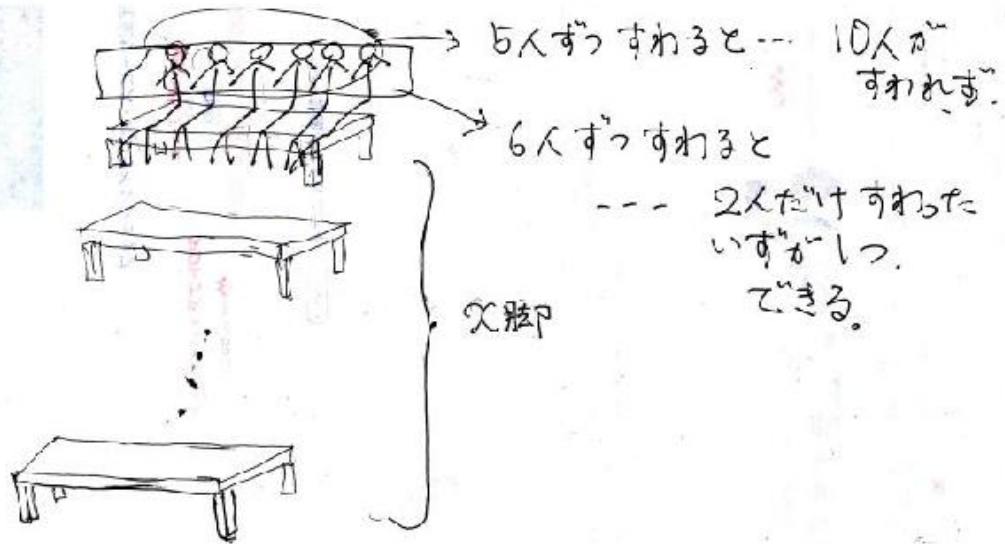 5人ずつすわると… 10人が
すわれず.
6人ずつすわると
--- 2人だけすわった
いすが1つ.
できる。
x脚